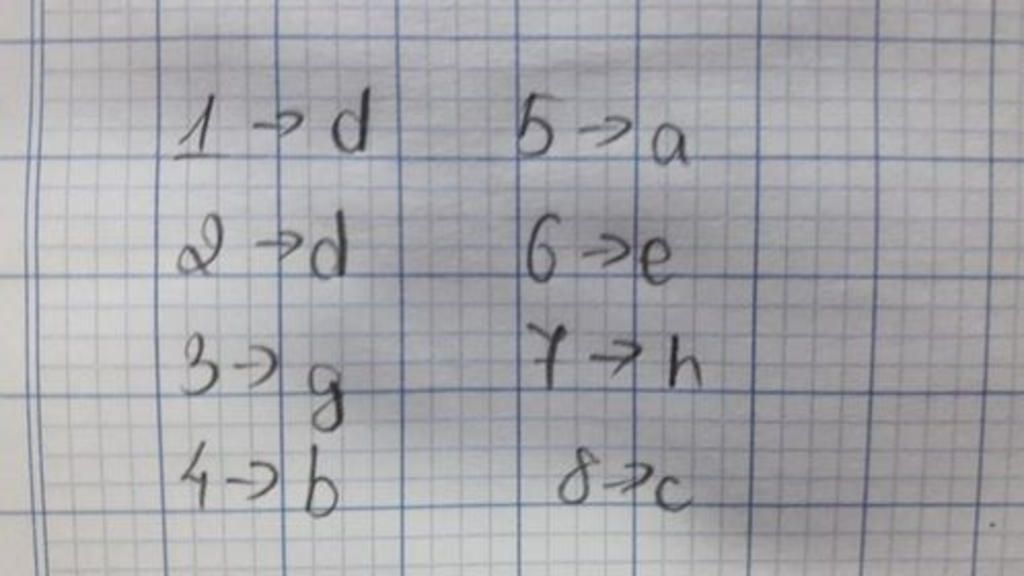 1 → d 5 → a
2 → d 6 → e
3 → g 7 → h
4 → b 8 → c